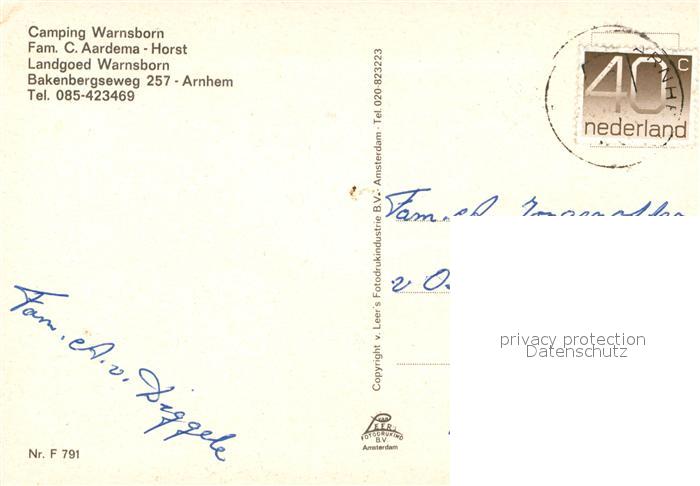 Camping Warnsborn
Fam. C. Aardema - Horst
Landgoed Warnsborn
Bakenbergseweg 257 - Arnhem
Tel. 085-423469
Copyright v. Leer's Fotodrukindustrie B.V. - Amsterdam - Tel. 020-823223
40 c
nederland
ARNHE
Fam.
v
privacy protection
Datenschutz
Fam. A. v. Diggele
VAN
LEER
FOTODRUKIND
B.V.
Amsterdam
Nr. F 791